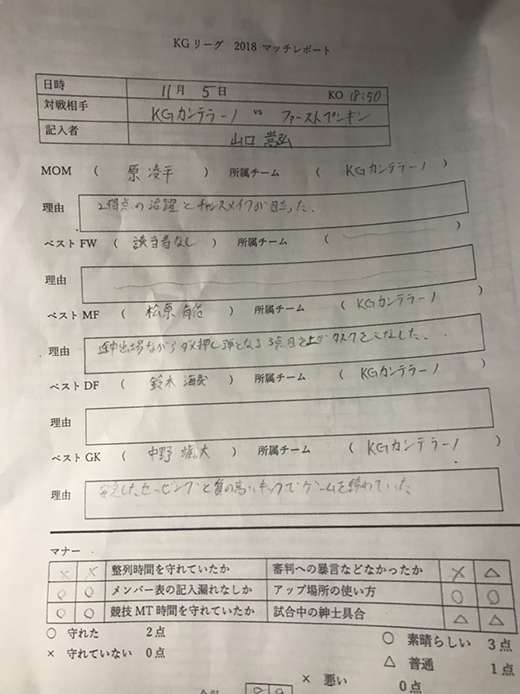 KGリーグ 2018 マッチレポート
日時 11月 5日 KO 18:50
対戦相手 KGカンテラーノ vs ファーストプンキン
記入者 山口 嵩弘
MOM ( 原 凌平 ) 所属チーム ( KGカンテラーノ )
理由 2得点の活躍とチャンスメイクが目立った.
ベストFW ( 該当者なし ) 所属チーム ( )
理由
ベストMF ( 松原 ) 所属チーム ( KGカンテラーノ )
理由 途中出場ながらダメ押し弾となる3点目を上げタスクをこなした.
ベストDF ( 鈴木 海 ) 所属チーム ( KGカンテラーノ )
理由
ベストGK ( 中野 颯大 ) 所属チーム ( KGカンテラーノ )
理由 安定したセービングと質の高いキックでゲームを締めていた
マナー
× × 整列時間を守れていたか 審判への暴言などなかったか × △
○ ○ メンバー表の記入漏れなしか アップ場所の使い方 ○ ○
○ ○ 競技MT時間を守れていたか 試合中の紳士具合 △ △
○ 守れた 2点 ○ 素晴らしい 3点
× 守れていない 0点 △ 普通 1点
× 悪い 0点